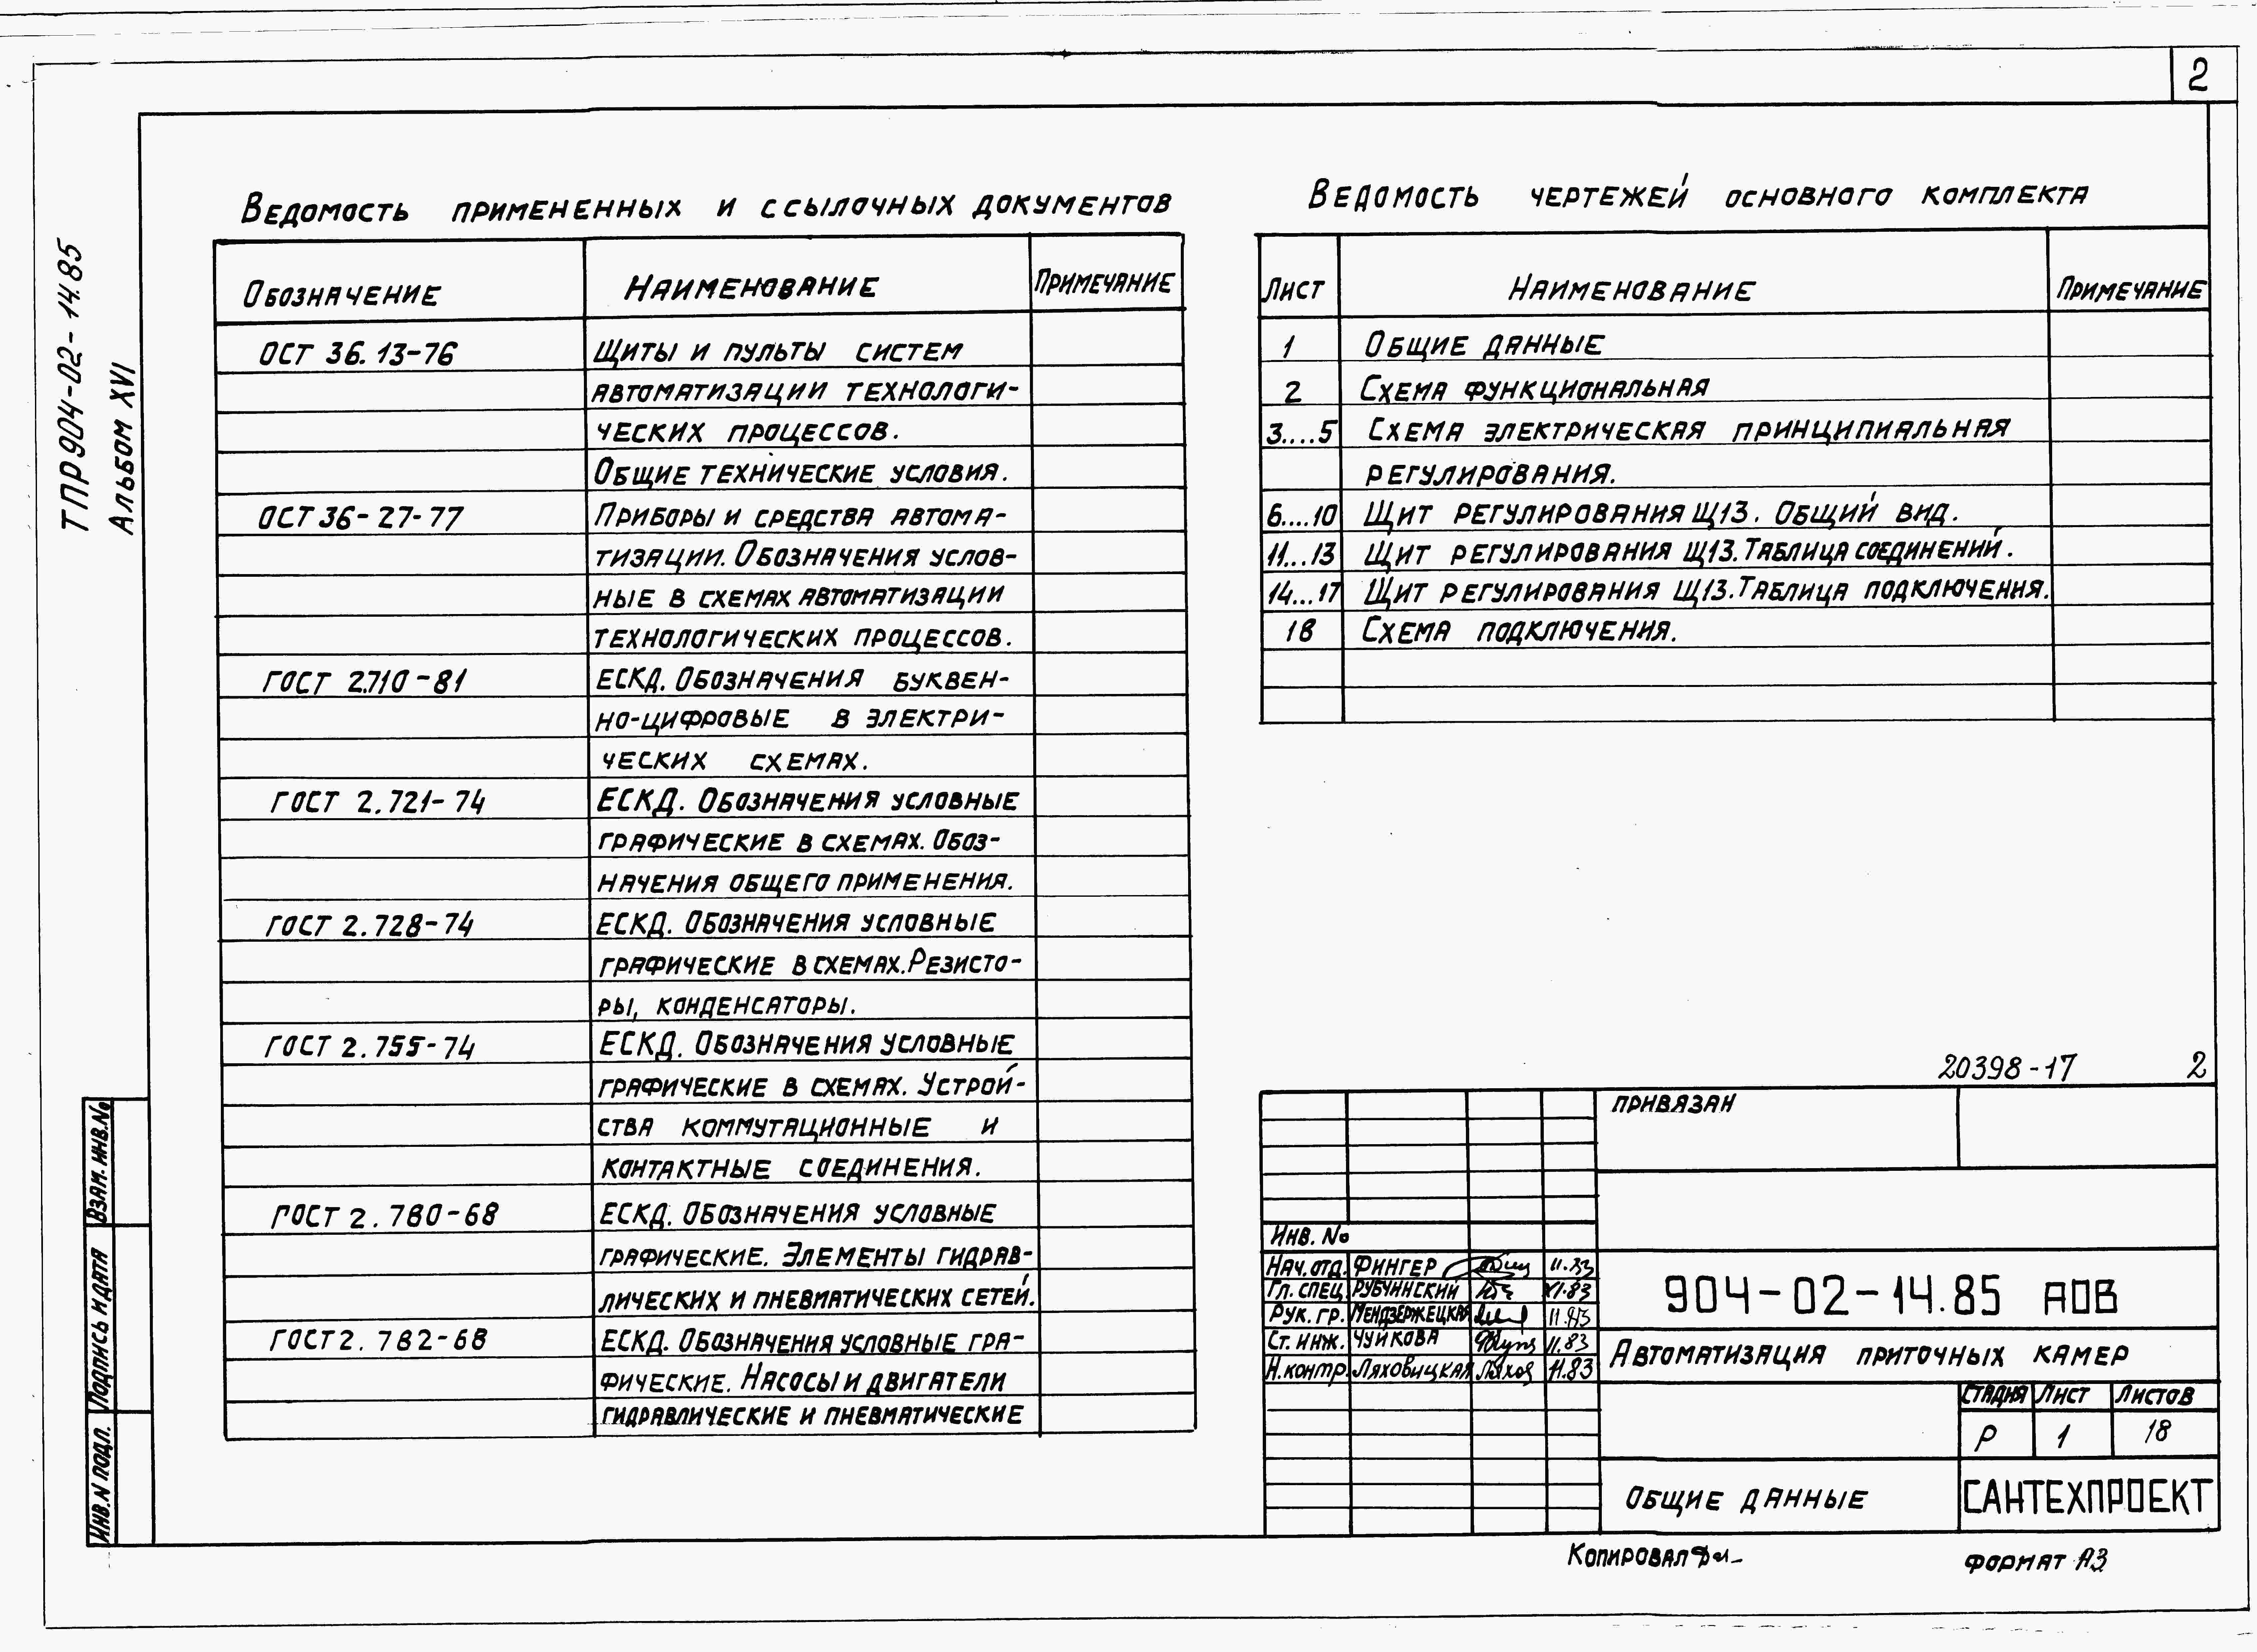 2
ТПР904-02-14.85
Альбом XVI
Ведомость примененных и ссылочных документов
Обозначение Наименование Примечание
ОСТ 36.13-76 Щиты и пульты систем
автоматизации технологи-
ческих процессов.
Общие технические условия.
ОСТ 36-27-77 Приборы и средства автома-
тизации. Обозначения услов-
ные в схемах автоматизации
технологических процессов.
ГОСТ 2.710-81 ЕСКД. Обозначения буквен-
но-цифровые в электри-
ческих схемах.
ГОСТ 2.721-74 ЕСКД. Обозначения условные
графические в схемах. Обоз-
начения общего применения.
ГОСТ 2.728-74 ЕСКД. Обозначения условные
графические в схемах. Резисто-
ры, конденсаторы.
ГОСТ 2.755-74 ЕСКД. Обозначения условные
графические в схемах. Устрой-
ства коммутационные и
контактные соединения.
ГОСТ 2.780-68 ЕСКД. Обозначения условные
графические. Элементы гидрав-
лических и пневматических сетей.
ГОСТ 2.782-68 ЕСКД. Обозначения условные гра-
фические. Насосы и двигатели
гидравлические и пневматические
Ведомость чертежей основного комплекта
Лист Наименование Примечание
1 Общие данные
2 Схема функциональная
3....5 Схема электрическая принципиальная
регулирования.
6....10 Щит регулирования Щ13. Общий вид.
11...13 Щит регулирования Щ13. Таблица соединений.
14...17 Щит регулирования Щ13. Таблица подключения.
18 Схема подключения.
20398-17 2
Привязан
Инв. №
Нач. отд. Фингер 11.83
Гл. спец. Рубчинский XI.83
Рук. гр. Мендзержецкая 11.83
Ст. инж. Чуйкова 11.83
Н. контр. Ляховицкая 11.83
904-02-14.85 АОВ
Автоматизация приточных камер
Стадия Лист Листов
Р 1 18
Общие данные
САНТЕХПРОЕКТ
Взам. инв. №
Подпись и дата
Инв. N подл.
Копировал
Формат А3